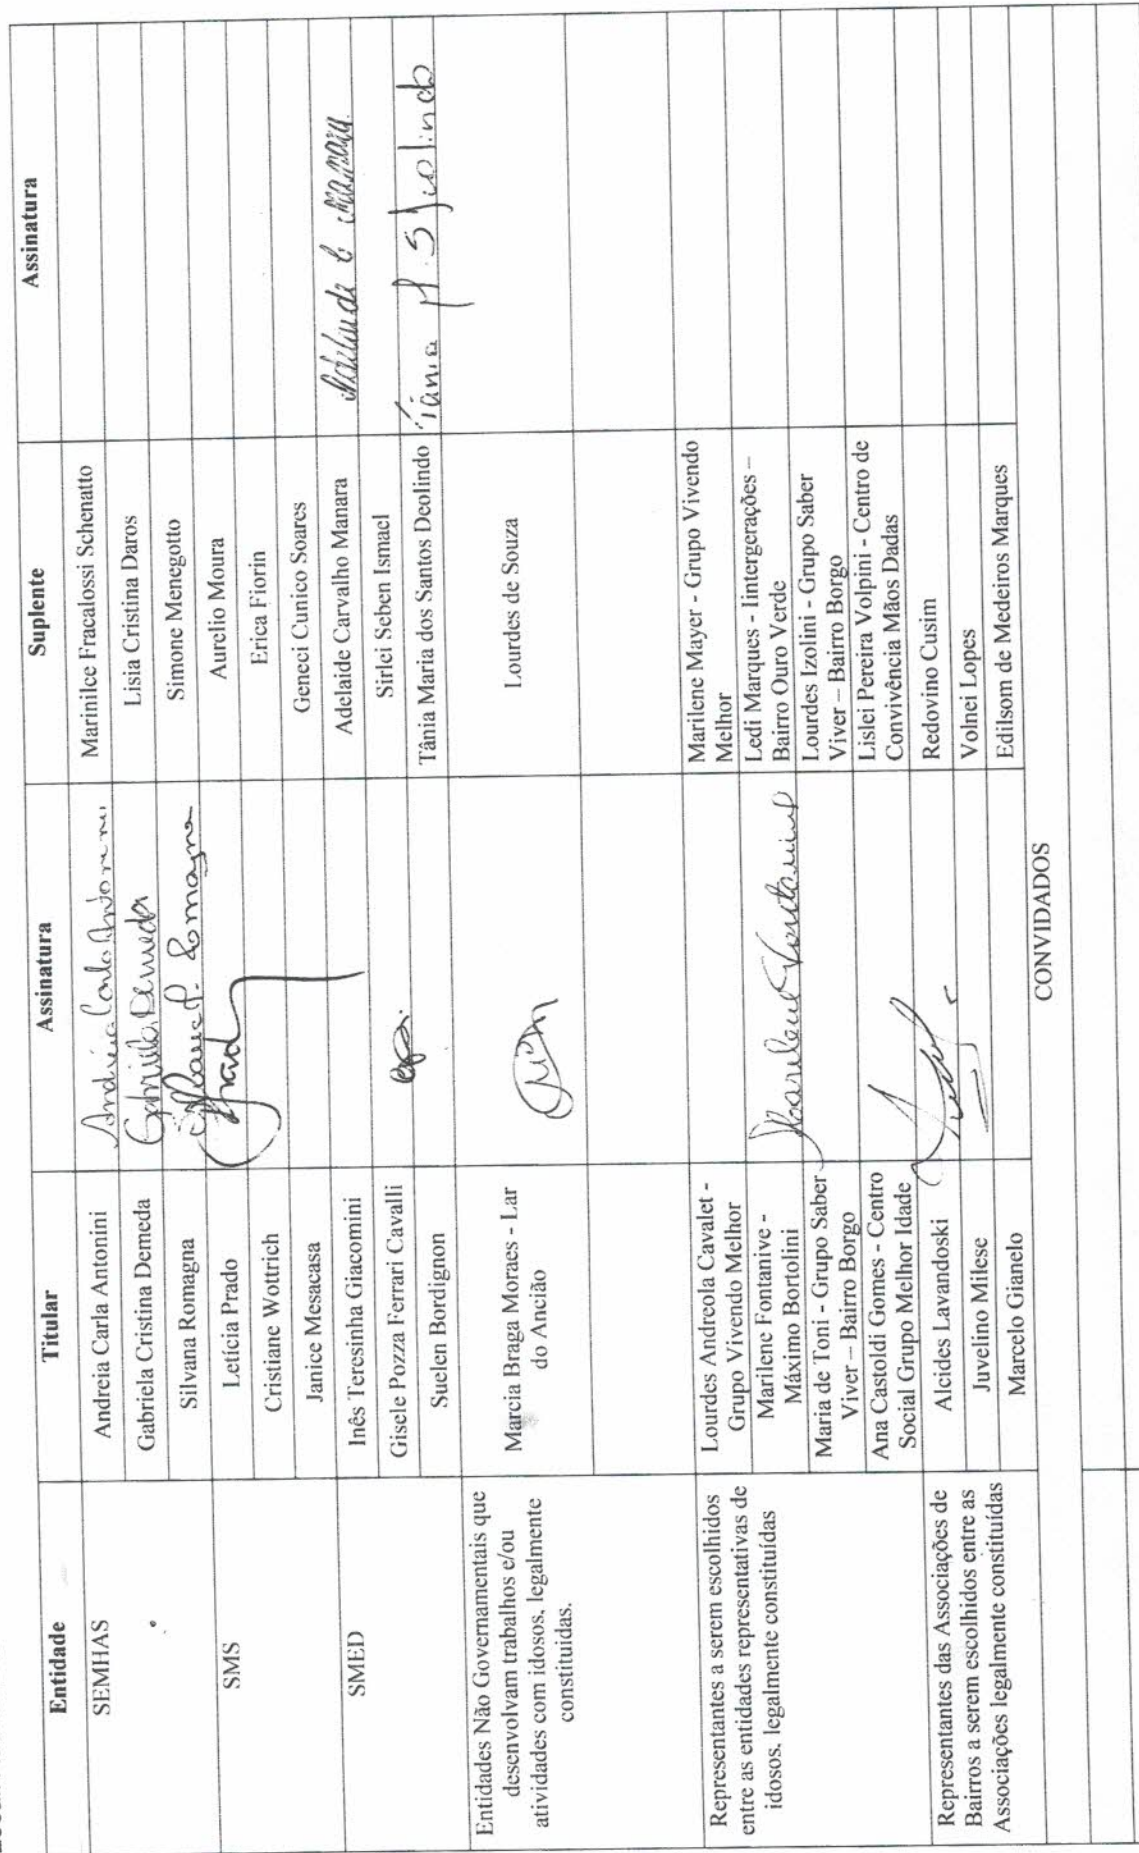 Entidade Titular Assinatura Suplente Assinatura
SEMHAS
Andreia Carla Antonini Andréia Carla Antonini Marinilce Fracalossi Schenatto
Gabriela Cristina Demeda Gabriela Demeda Lisia Cristina Daros
Silvana Romagna Silvana P. Romagna Simone Menegotto
SMS
Letícia Prado Prado Aurelio Moura
Cristiane Wottrich Erica Fiorin
Janice Mesacasa Geneci Cunico Soares
SMED
Inês Teresinha Giacomini Adelaide Carvalho Manara Adelaide C Manara
Gisele Pozza Ferrari Cavalli Sirlei Seben Ismael
Suelen Bordignon Tânia Maria dos Santos Deolindo Tânia M. S Deolindo
Entidades Não Governamentais que
desenvolvam trabalhos e/ou
atividades com idosos, legalmente
constituidas.
Marcia Braga Moraes - Lar
do Ancião
Lourdes de Souza
Representantes a serem escolhidos
entre as entidades representativas de
idosos, legalmente constituídas
Lourdes Andreola Cavalet -
Grupo Vivendo Melhor
Marilene Mayer - Grupo Vivendo
Melhor
Marilene Fontanive -
Máximo Bortolini
Marilene Fontanive
Ledi Marques - Iintergerações –
Bairro Ouro Verde
Maria de Toni - Grupo Saber
Viver – Bairro Borgo
Lourdes Izolini - Grupo Saber
Viver – Bairro Borgo
Ana Castoldi Gomes - Centro
Social Grupo Melhor Idade
Lislei Pereira Volpini - Centro de
Convivência Mãos Dadas
Representantes das Associações de
Bairros a serem escolhidos entre as
Associações legalmente constituídas
Alcides Lavandoski Redovino Cusim
Juvelino Milese Volnei Lopes
Marcelo Gianelo Edilsom de Medeiros Marques
CONVIDADOS